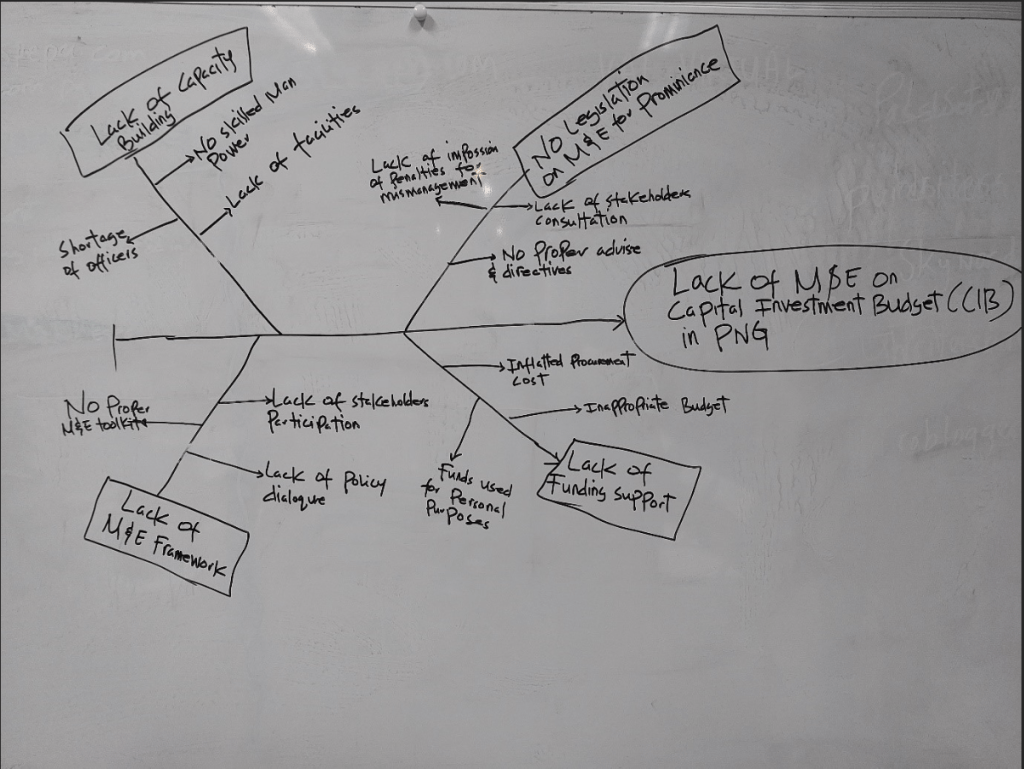 Lack of Capacity
Building
No skilled Man
Power
Lack of facilities
Shortage
of officers
No Legislation
on M&E for Prominance
Lack of impossion
of Penalties for
mismanagement
Lack of stakeholders
consultation
No Proper advise
& directives
Lack of M&E on
Capital Investment Budget (CIB)
in PNG
No Proper
M&E toolkits
Lack of stakeholders
Participation
Lack of Policy
dialogue
Lack of
M&E Framework
Inflatted Procurement
cost
Inappropriate Budget
Funds used
for Personal
Purposes
Lack of
Funding support